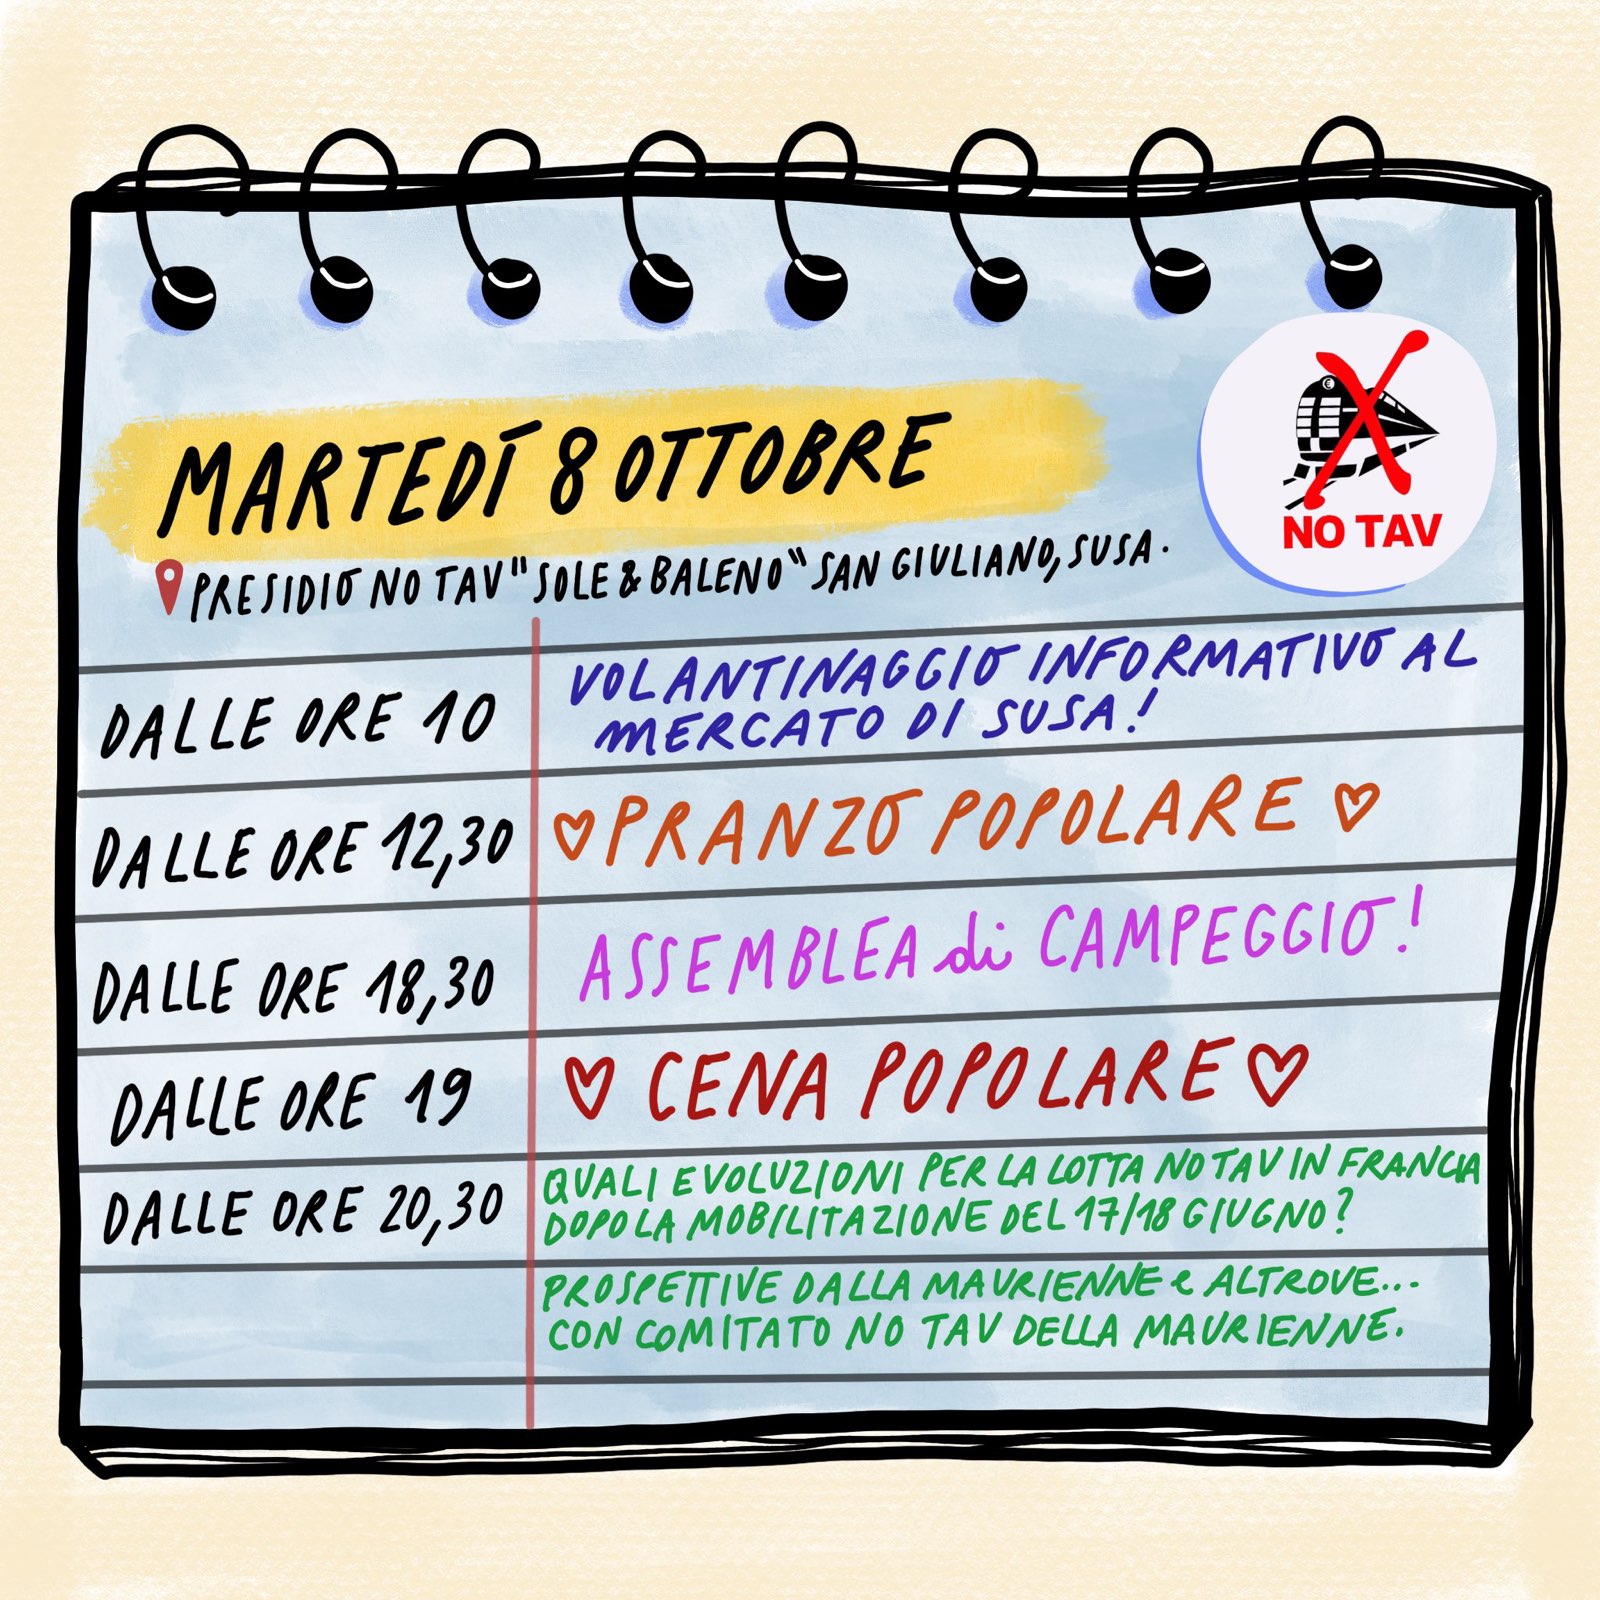 MARTEDÍ 8 OTTOBRE
PRESIDIO NO TAV "SOLE & BALENO" SAN GIULIANO, SUSA.
NO TAV
DALLE ORE 10
VOLANTINAGGIO INFORMATIVO AL
MERCATO DI SUSA!
DALLE ORE 12,30
♡ PRANZO POPOLARE ♡
DALLE ORE 18,30
ASSEMBLEA di CAMPEGGIO!
DALLE ORE 19
♡ CENA POPOLARE ♡
DALLE ORE 20,30
QUALI EVOLUZIONI PER LA LOTTA NO TAV IN FRANCIA
DOPO LA MOBILITAZIONE DEL 17/18 GIUGNO?
PROSPETTIVE DALLA MAURIENNE e ALTROVE...
CON COMITATO NO TAV DELLA MAURIENNE.